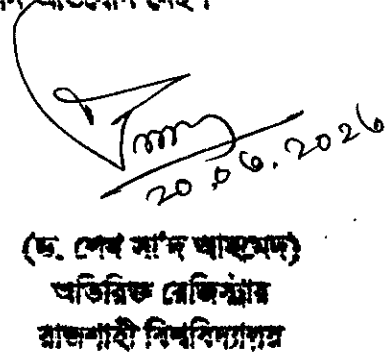 অভিযোগ নেই।
20.06.2026
(ড. শেখ সা'দ আহমেদ)
অতিরিক্ত রেজিস্ট্রার
রাজশাহী বিশ্ববিদ্যালয়